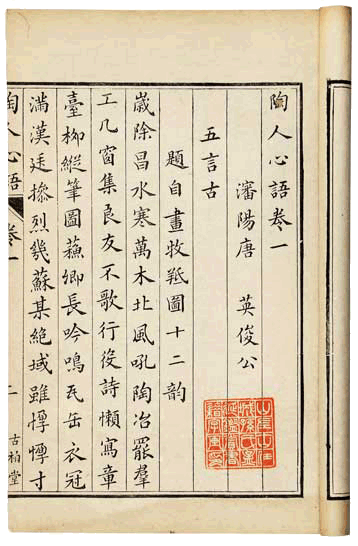 陶人心語卷一
瀋陽唐 英俊公
五言古
題自畫牧羝圖十二韵
歲除昌水寒萬木北風吼陶冶罷羣
工几窗集良友不歌行役詩懶寫章
臺柳縱筆圖蘇卿長吟鳴瓦缶衣冠
滿漢廷摻烈幾蘇某絕域雖惸惸寸
陶人心語 卷一
一
古柏堂